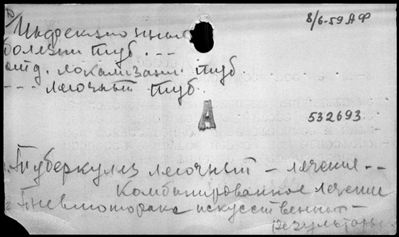 8/6-59 АФ
Инфекционные
болезни туб. ---
отд. локализаци. туб
--- легочный туб.
А
532693
Туберкулез легочный - лечение --
Комбинированное лечение
Пневмоторакс искусственный -
результаты